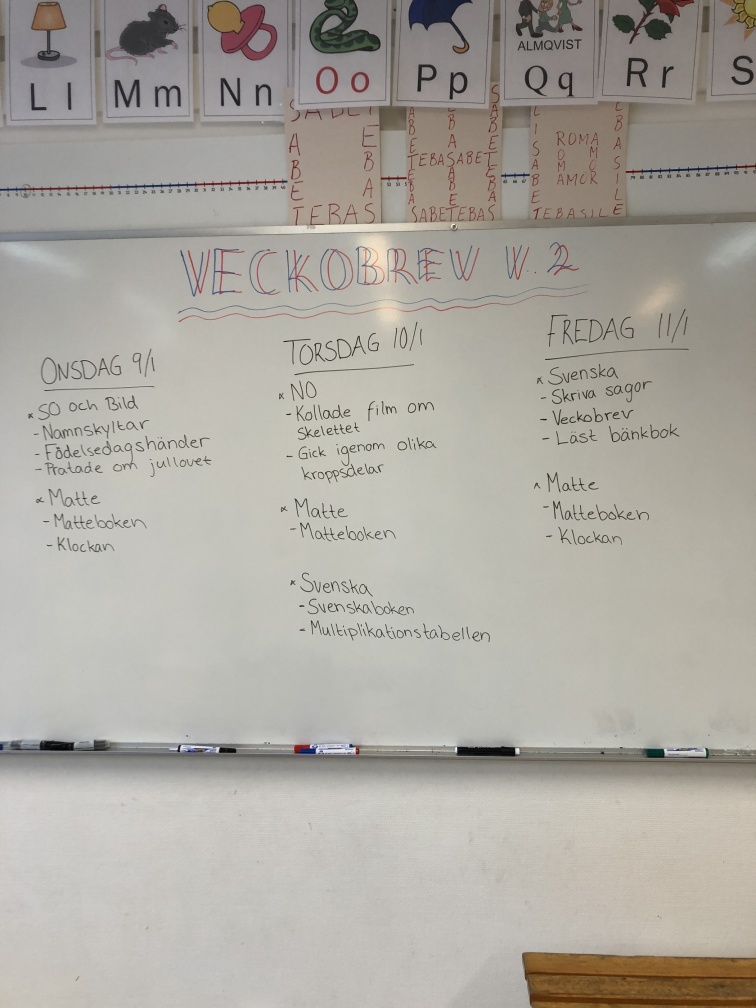 L l
M m
N n
O o
P p
ALMQVIST
Q q
R r
S
TEBASABET
SABETEBAS
ROMA
AMOR
TEBASILE
TEBAS
VECKOBREV V. 2
ONSDAG 9/1
* SO och Bild
- Namnskyltar
- Födelsedagshänder
- Pratade om jullovet
* Matte
- Matteboken
- Klockan
TORSDAG 10/1
* NO
- Kollade film om
skelettet
- Gick igenom olika
kroppsdelar
* Matte
- Matteboken
* Svenska
- Svenskaboken
- Multiplikationstabellen
FREDAG 11/1
* Svenska
- Skriva sagor
- Veckobrev
- Läst bänkbok
* Matte
- Matteboken
- Klockan